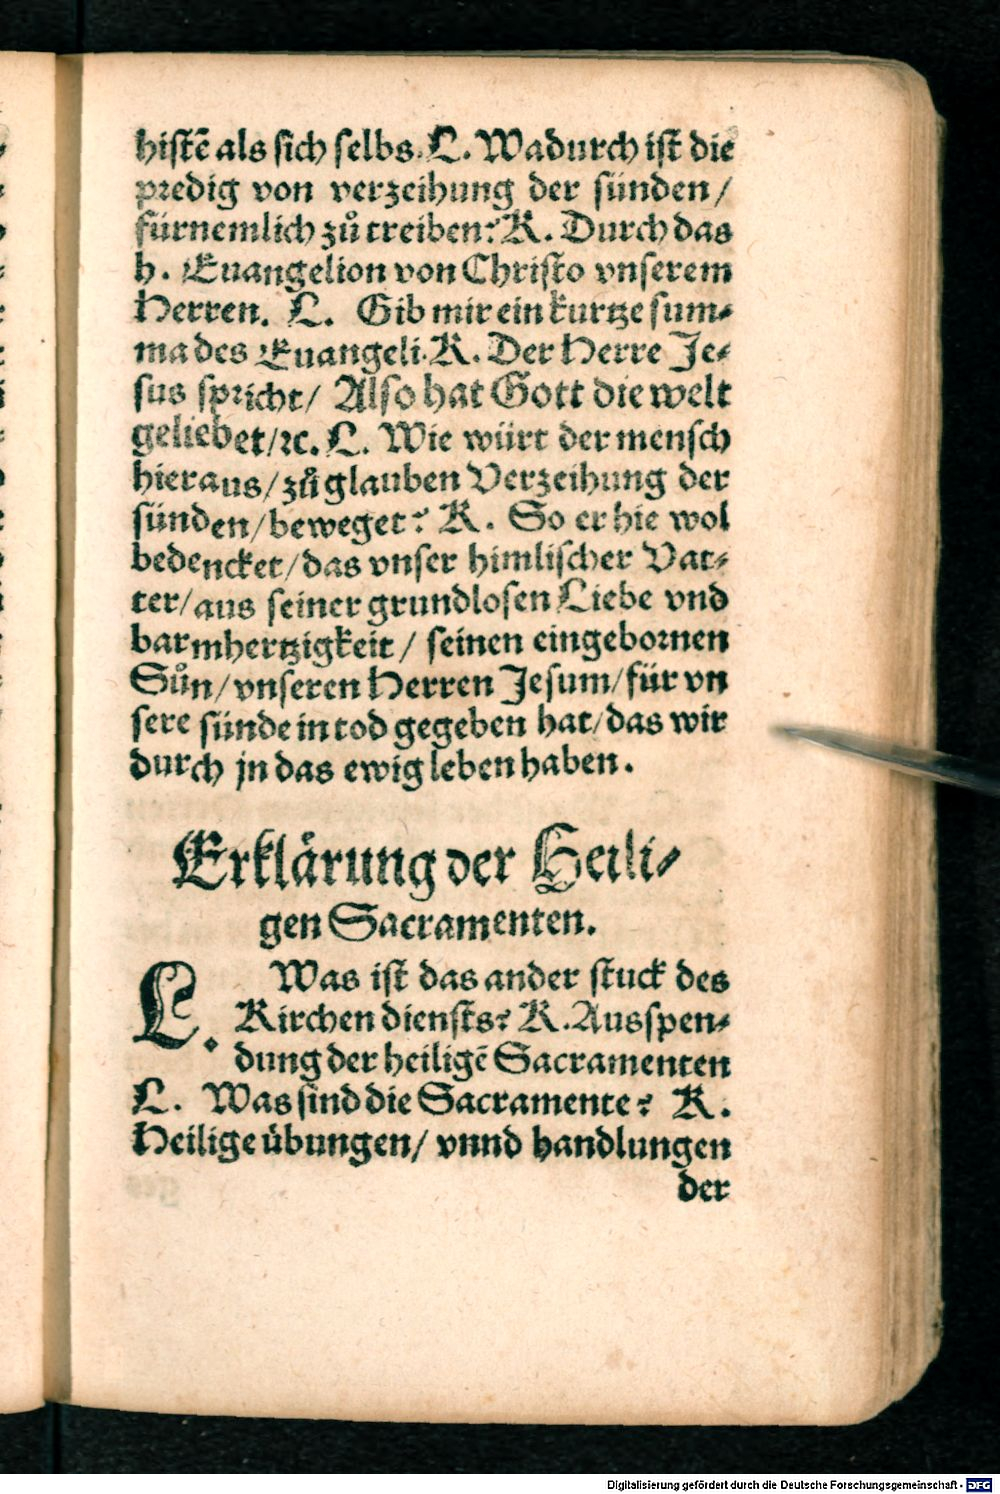 histē als sich selbs. L. Wadurch ist die
predig von verzeihung der sünden/
fürnemlich zů treiben? K. Durch das
h. Euangelion von Christo vnserem
Herren. L. Gib mir ein kurtze sum⸗
ma des Euangeli. K. Der Herre Je⸗
sus spricht/ Also hat Gott die welt
geliebet/ ꝛc. L. Wie würt der mensch
hieraus/ zů glauben Verzeihung der
sünden/ beweget? K. So er hie wol
bedencket/ das vnser himlischer Vat⸗
ter/ aus seiner grundlosen Liebe vnd
barmhertzigkeit/ seinen eingebornen
Sůn/ vnseren Herren Jesum/ für vn
sere sünde in tod gegeben hat/ das wir
durch jn das ewig leben haben.
Erklärung der Heili⸗
gen Sacramenten.
L. Was ist das ander stuck des
Kirchen diensts? K. Ausspen⸗
dung der heiligē Sacramenten
L. Was sind die Sacramente? K.
Heilige übungen/ vnnd handlungen
der
Digitalisierung gefördert durch die Deutsche Forschungsgemeinschaft - DFG